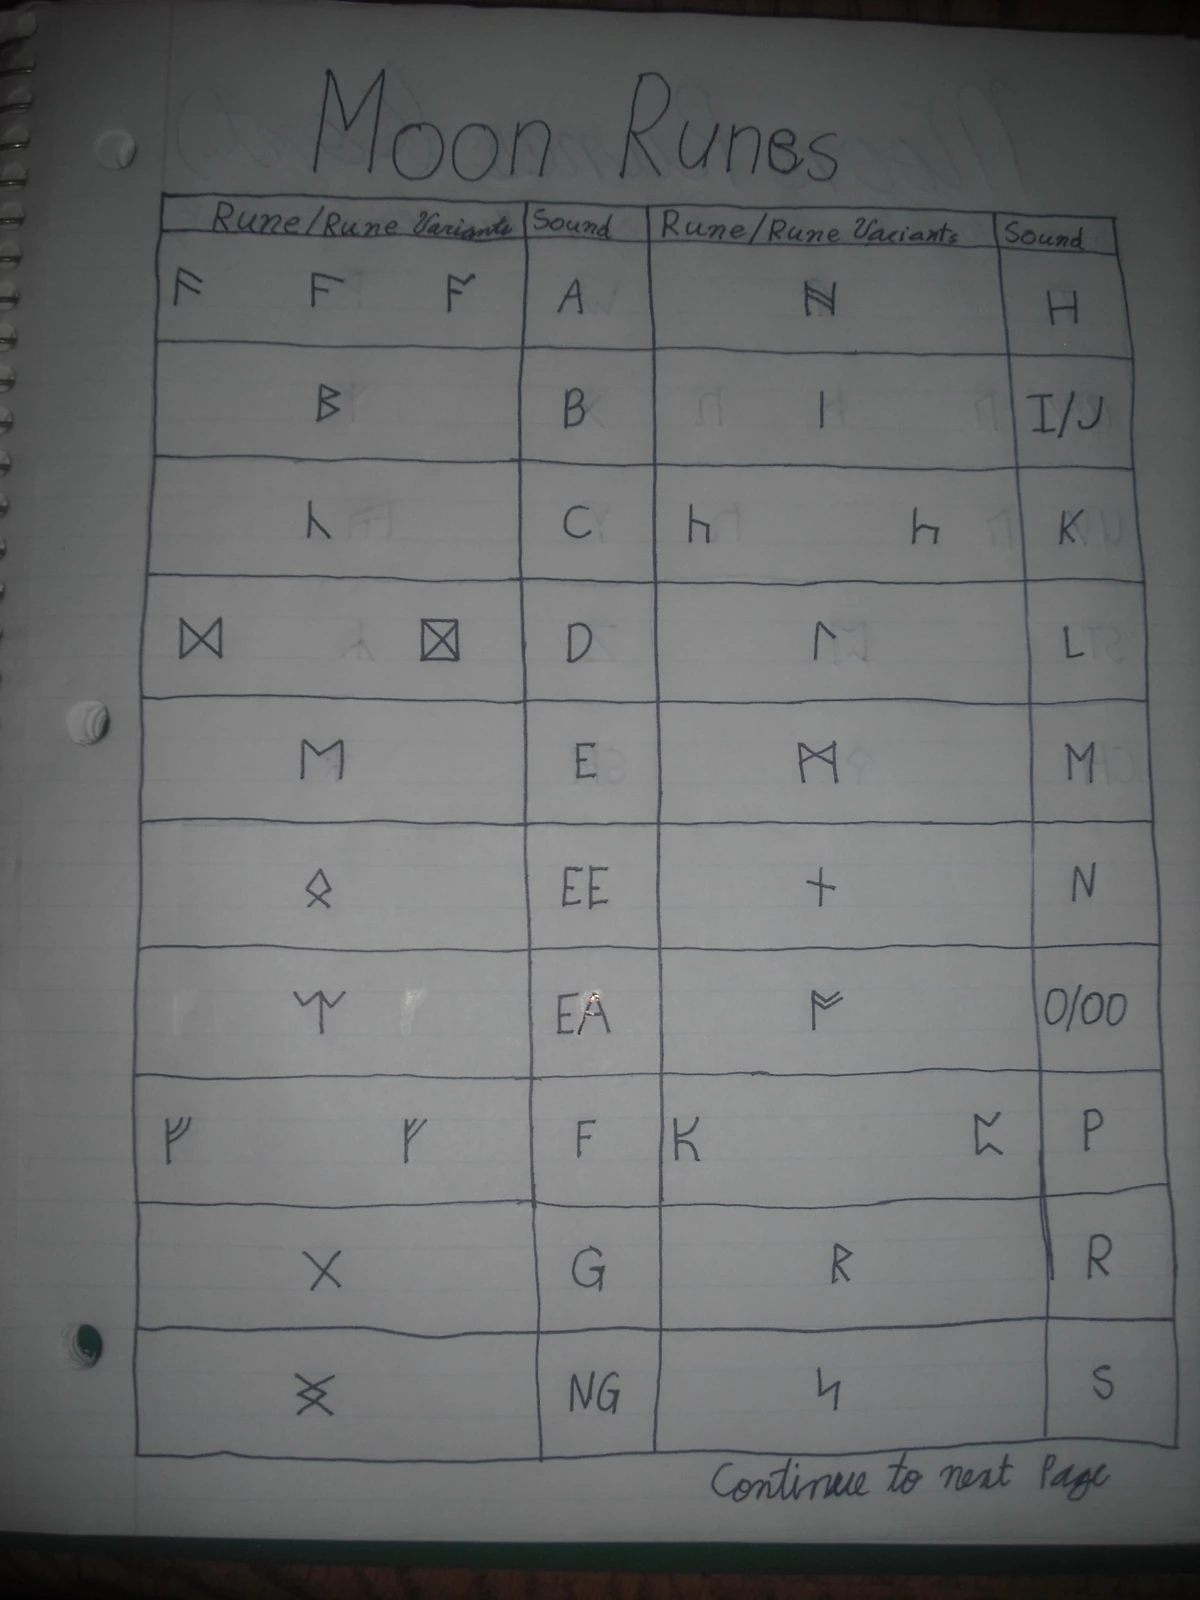 Moon Runes
Rune/Rune Variants Sound Rune/Rune Variants Sound
ᚨ ᚠ ᚩ A ᚻ H
ᛒ B ᛁ I/J
ᚳ C K
ᛞ D ᛚ L
ᛖ E ᛗ M
ᛟ EE ᚾ N
EA ᚩ O/OO
ᚠ ᚠ F ᛈ P
ᚷ G ᚱ R
NG ᛋ S
Continue to next Page